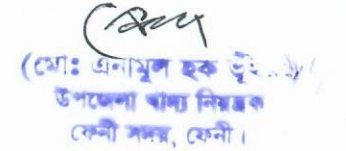 (মোঃ এনামুল হক ভূঁ
উপজেলা খাদ্য নিয়ন্ত্রক
ফেনী সদর, ফেনী।